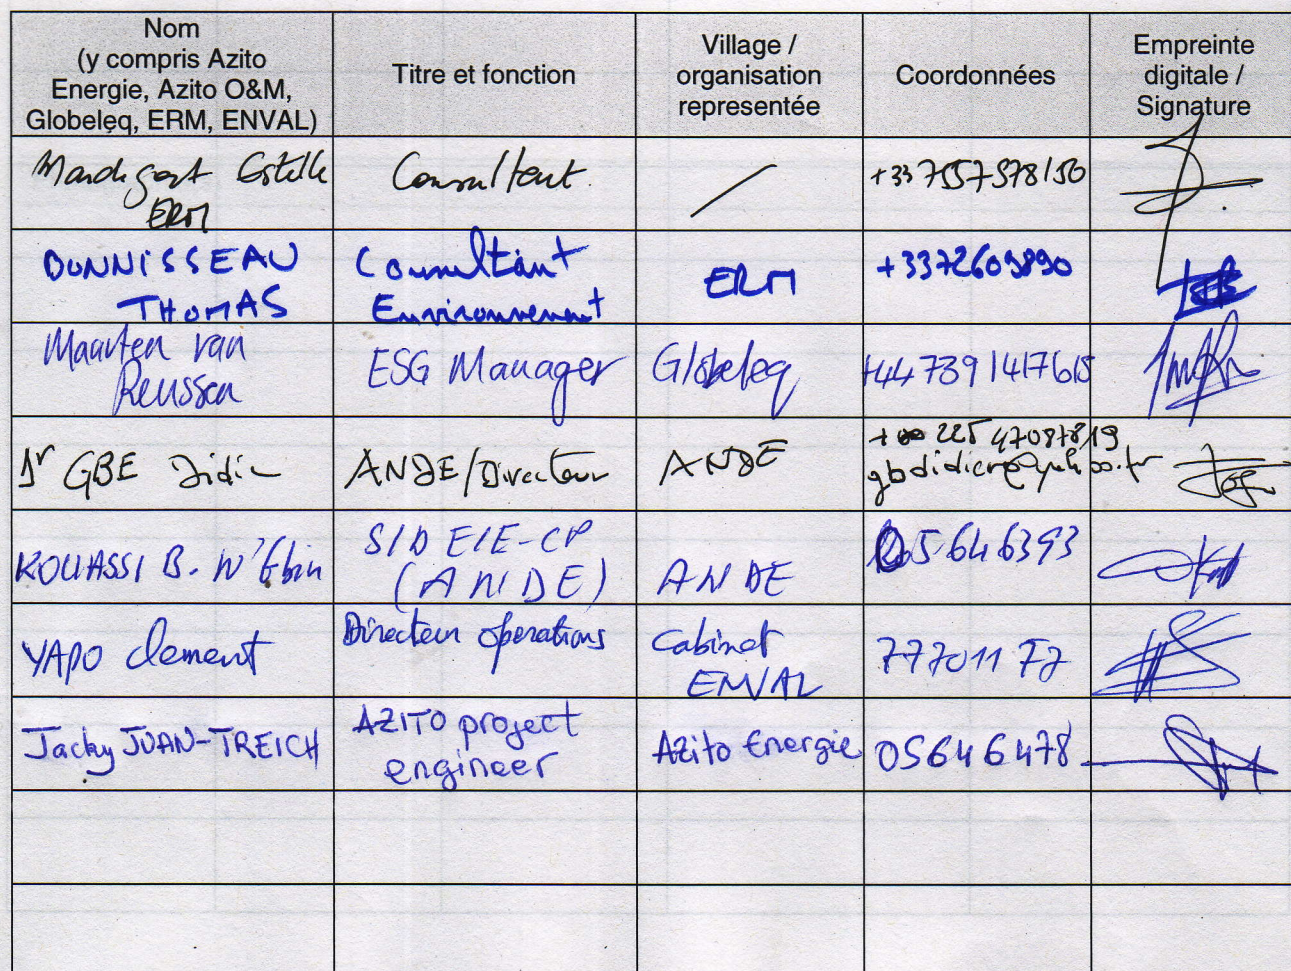 Nom
(y compris Azito
Energie, Azito O&M,
Globeleq, ERM, ENVAL)
Titre et fonction
Village /
organisation
representée
Coordonnées
Empreinte
digitale /
Signature
Estelle
ERM
Consultant
+33 7557578150
DONNISSEAU
THOMAS
Consultant
Environnement
ERM
+3372609890
Maarten van
ESG Manager
Globeleq
+44 7391417615
GBE Didie
ANDE/Directeur
ANDE
225 47087819
KOUASSI B. N'Gbin
SIDEIE-CP
(ANDE)
ANDE
05646393
YAPO Clement
Directeur operations
Cabinet
ENVAL
Jacky JUAN-TREICH
AZITO project
engineer
Azito Energie
05646478